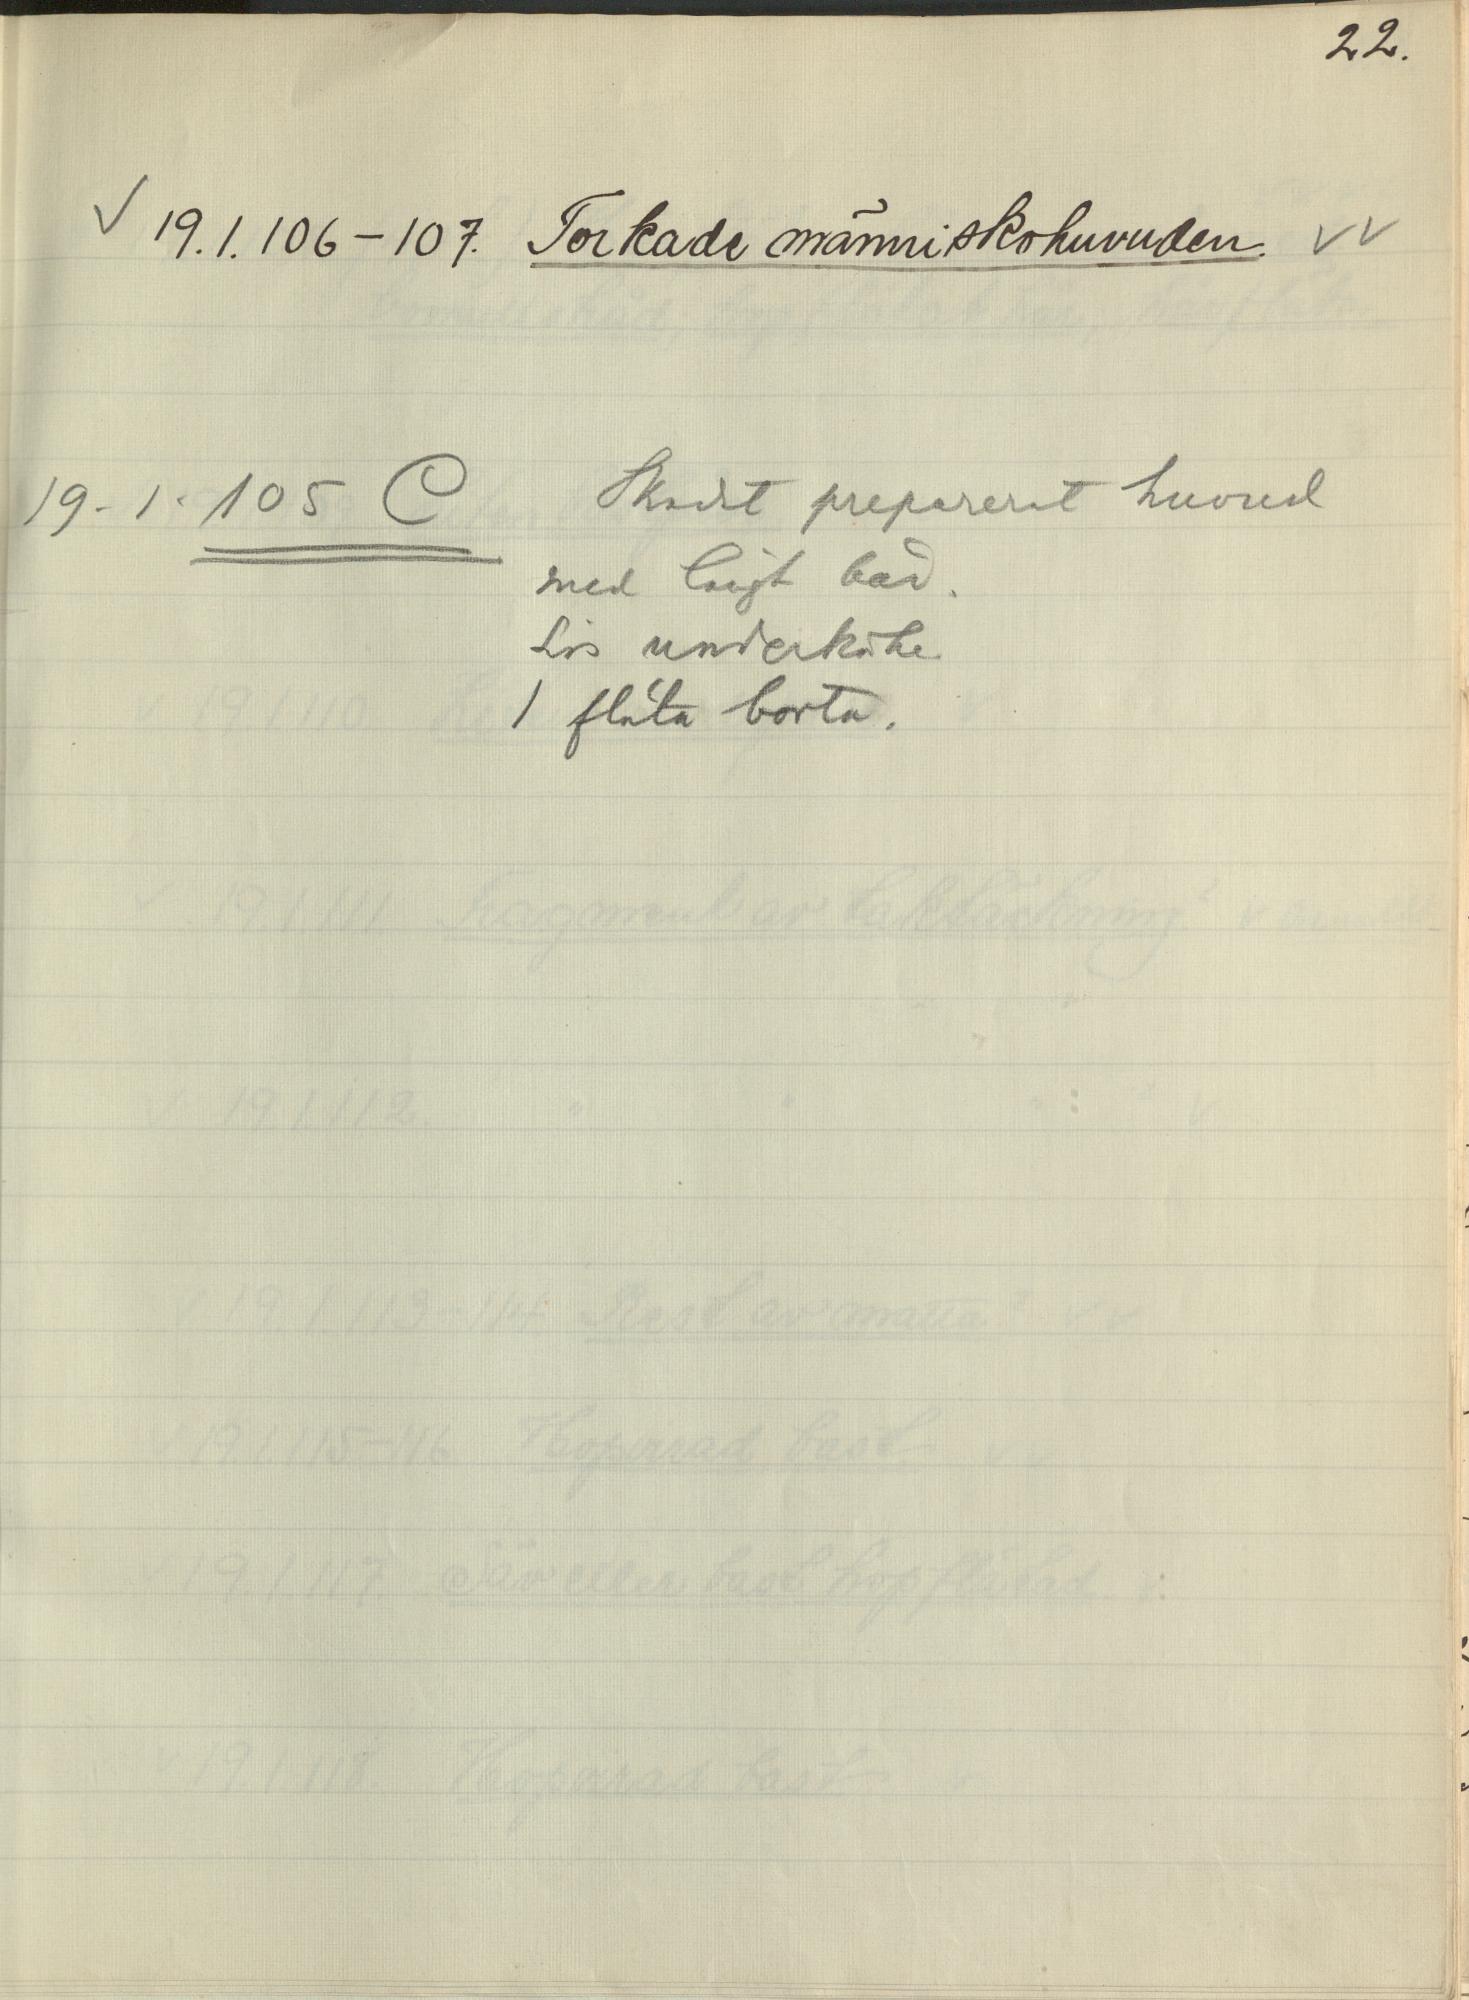 22.
✓ 19.1.106-107. Torkade människohuvuden. ✓✓
19-1-105 C Skadat preparerat huvud
med långt hår.
Lös underkäke
1 fläta borta.